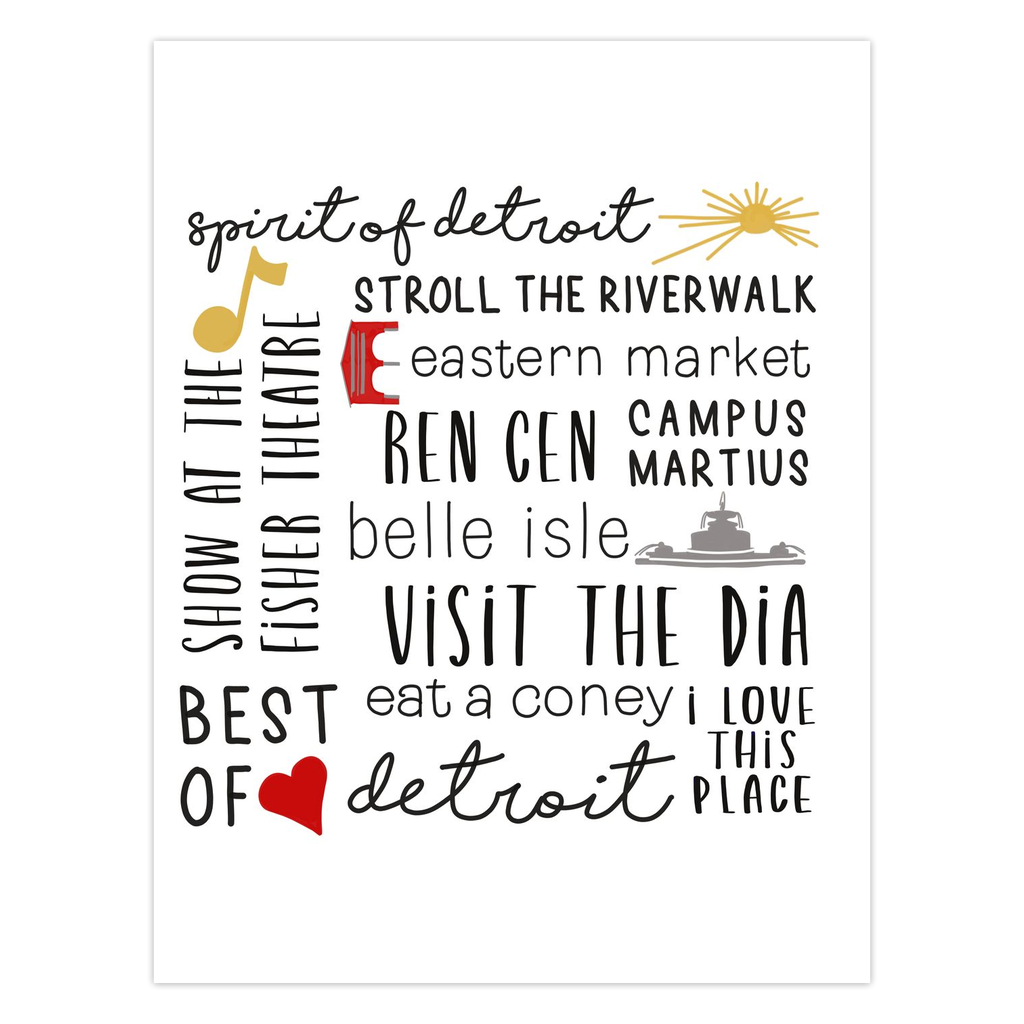 spirit of detroit
STROLL THE RIVERWALK
SHOW AT THE
FiSHER THEATRE
eastern market
REN CEN
CAMPUS
MARTIUS
belle isle
ViSiT THE DiA
eat a coney
i LOVE
THiS
PLACE
BEST
OF
detroit